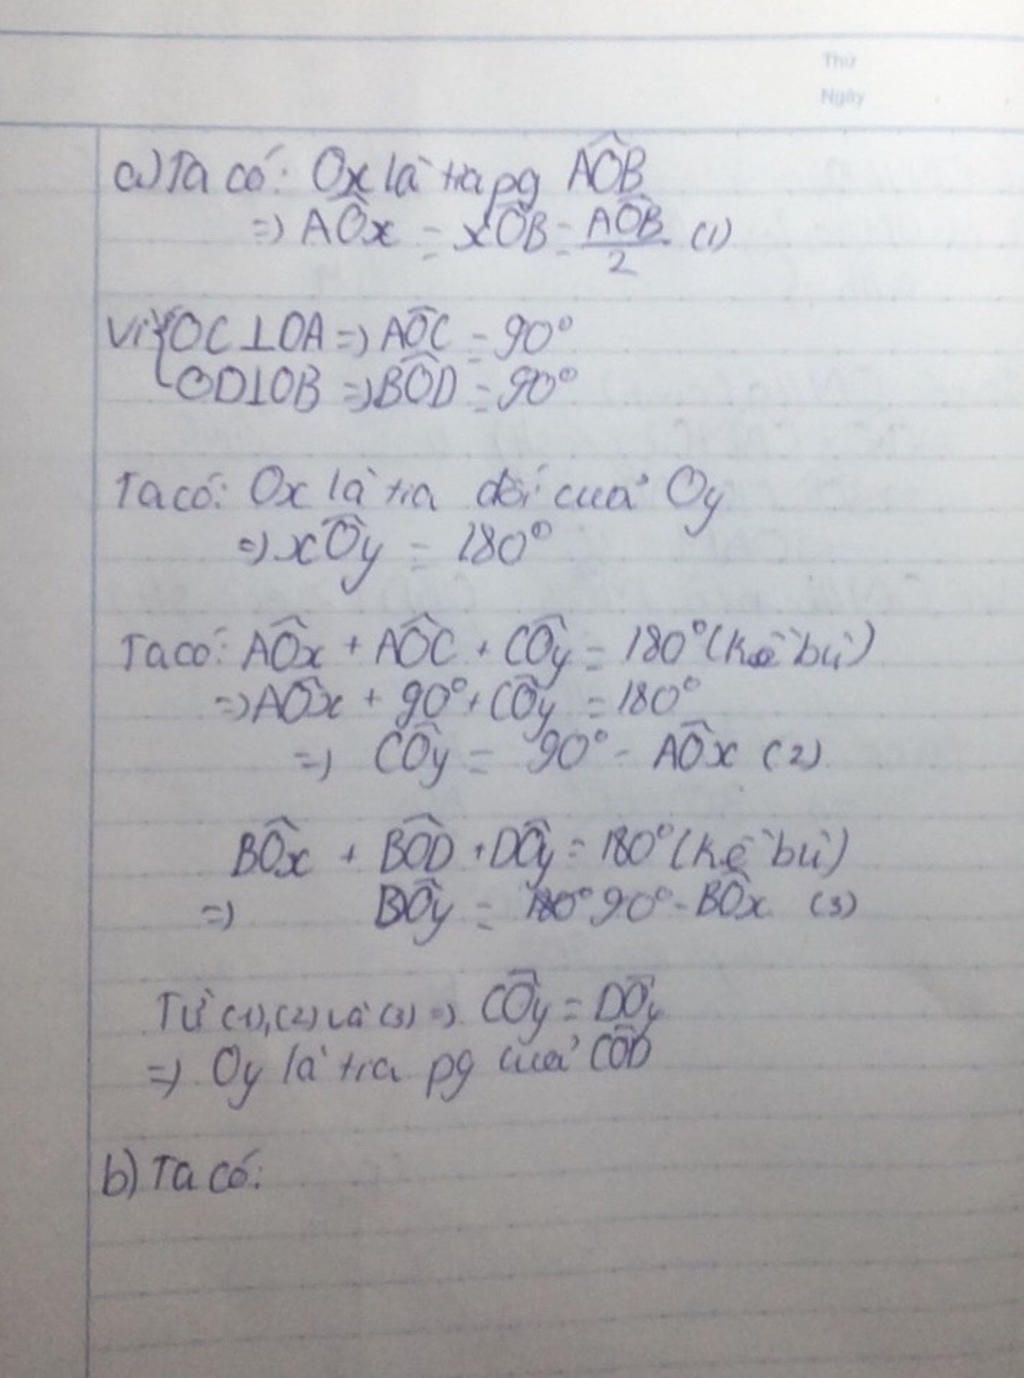 Thứ
Ngày
a) Ta có: Ox là tia pg AÔB
=> AÔx = xÔB = AÔB/2 (1)
Vì { OC⊥OA => AÔC = 90°
OD⊥OB => BÔD = 90°
Ta có: Ox là tia đối của Oy
=> xÔy = 180°
Ta có: AÔx + AÔC + CÔy = 180° (kề bù)
=> AÔx + 90° + CÔy = 180°
=> CÔy = 90° - AÔx (2)
BÔx + BÔD + DÔy = 180° (kề bù)
=> BÔy = 90° - BÔx (3)
Từ (1), (2) và (3) => CÔy = DÔy
=> Oy là tia pg của CÔD
b) Ta có: